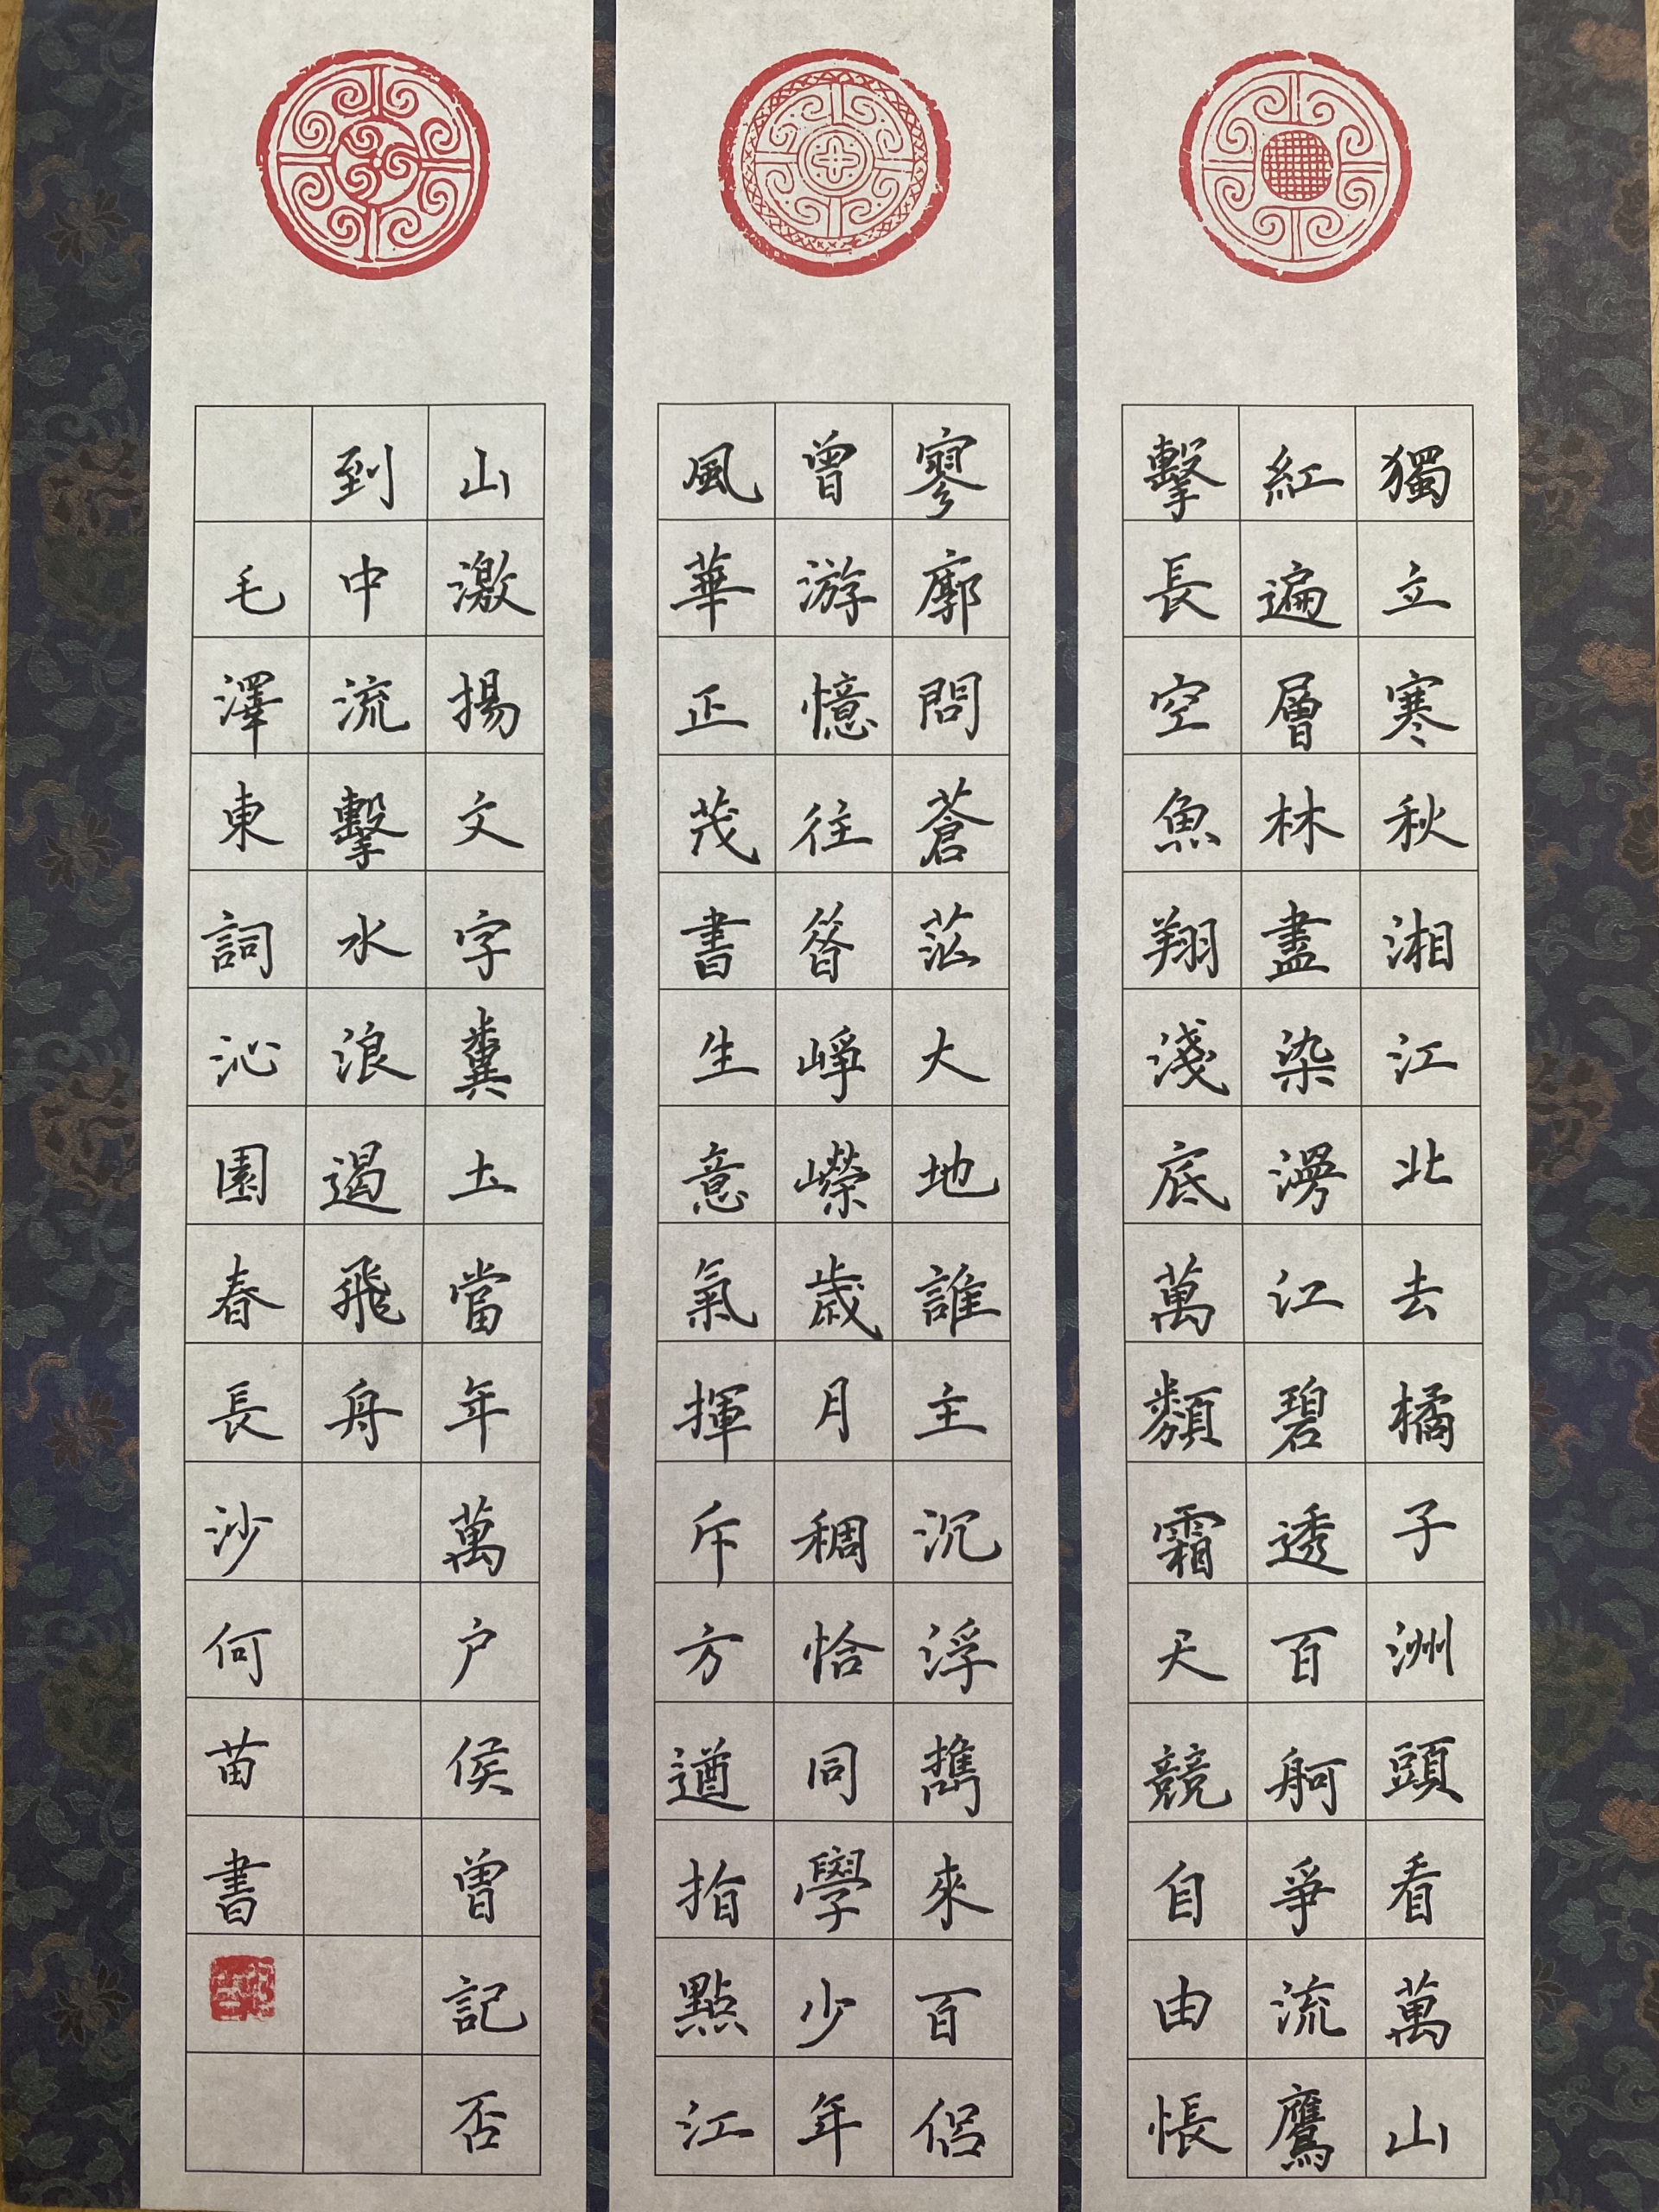 獨立寒秋湘江北去橘子洲頭看萬山
紅遍層林盡染漫江碧透百舸爭流鷹
擊長空魚翔淺底萬類霜天競自由悵
寥廓問蒼茫大地誰主沉浮攜來百侶
曾游憶往昔崢嶸歲月稠恰同學少年
風華正茂書生意氣揮斥方遒指點江
山激揚文字糞土當年萬户侯曾記否
到中流擊水浪遏飛舟
毛澤東詞沁園春長沙何苗書